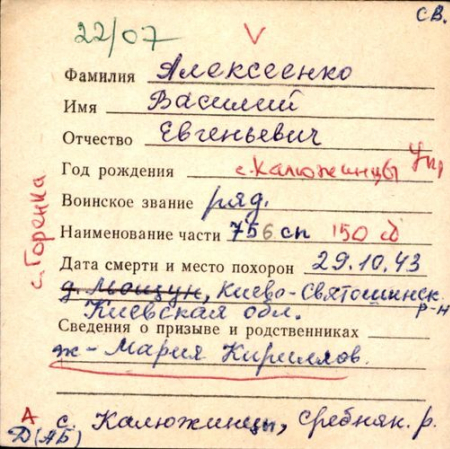 св.
22/07 V
Фамилия Алексеенко
Имя Василий
Отчество Евгеньевич
Год рождения с. Калюжинцы Укр
Воинское звание ряд.
Наименование части 756 сп 150 сд
Дата смерти и место похорон 29.10.43
д. Мощун, Киево-Святошинск.
Киевская обл. р-н
Сведения о призыве и родственниках
ж - Мария Кириллов.
с. Горенка
А с. Калюжинцы, Сребнян. р.
Д(АБ)